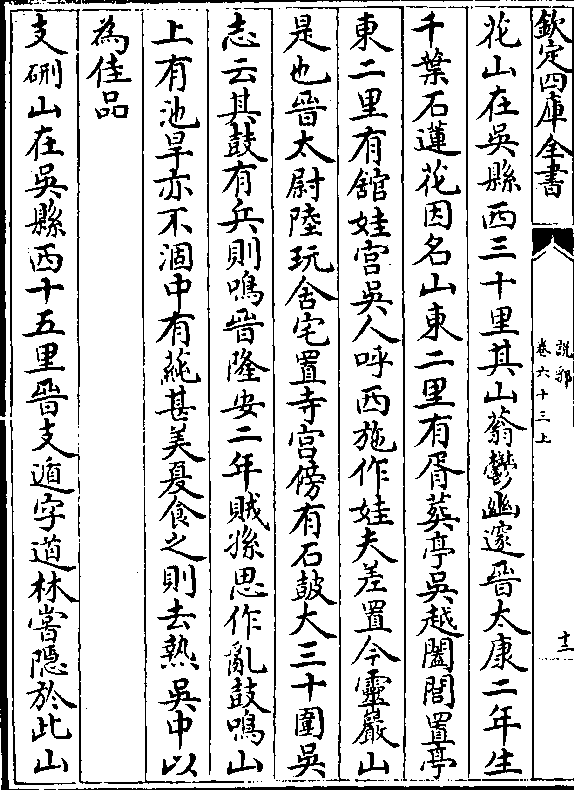 欽定四庫全書
說郛
卷六十三上
十二
花山在吳縣西三十里其山蓊鬱幽邃晉太康二年生
千葉石蓮花因名山東二里有胥葬亭吳越闔閭置亭
東二里有舘娃宫吳人呼西施作娃夫差置今靈巖山
是也晉太尉陸玩舍宅置寺宫傍有石鼓大三十圍吳
志云其鼓有兵則鳴晉隆安二年賊孫思作亂鼓鳴山
上有池旱亦不涸中有蓴甚美夏食之則去熱吳中以
為佳品
支硎山在吳縣西十五里晉支遁字道林嘗隱於此山